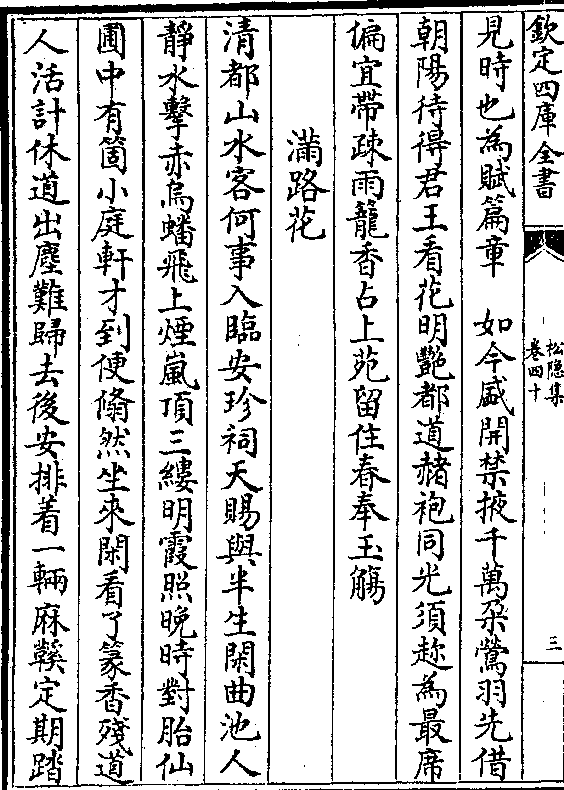 欽定四庫全書
松隱集
卷四十
三
見時也為賦篇章　如今盛開禁掖千萬朶鶯羽先借
朝陽待得君王看花明艷都道赭袍同光須趂為最席
偏宜帶疎雨籠香占上苑留住春奉玉觴
滿路花
清都山水客何事入臨安珍祠天賜與半生閑曲池人
靜水擊赤烏蟠飛上煙嵐頂三縷明霞照晩時對胎仙
圃中有箇小庭軒才到便翛然坐來閑看了篆香殘道
人活計休道出塵難歸去後安排着一輛麻鞵定期踏